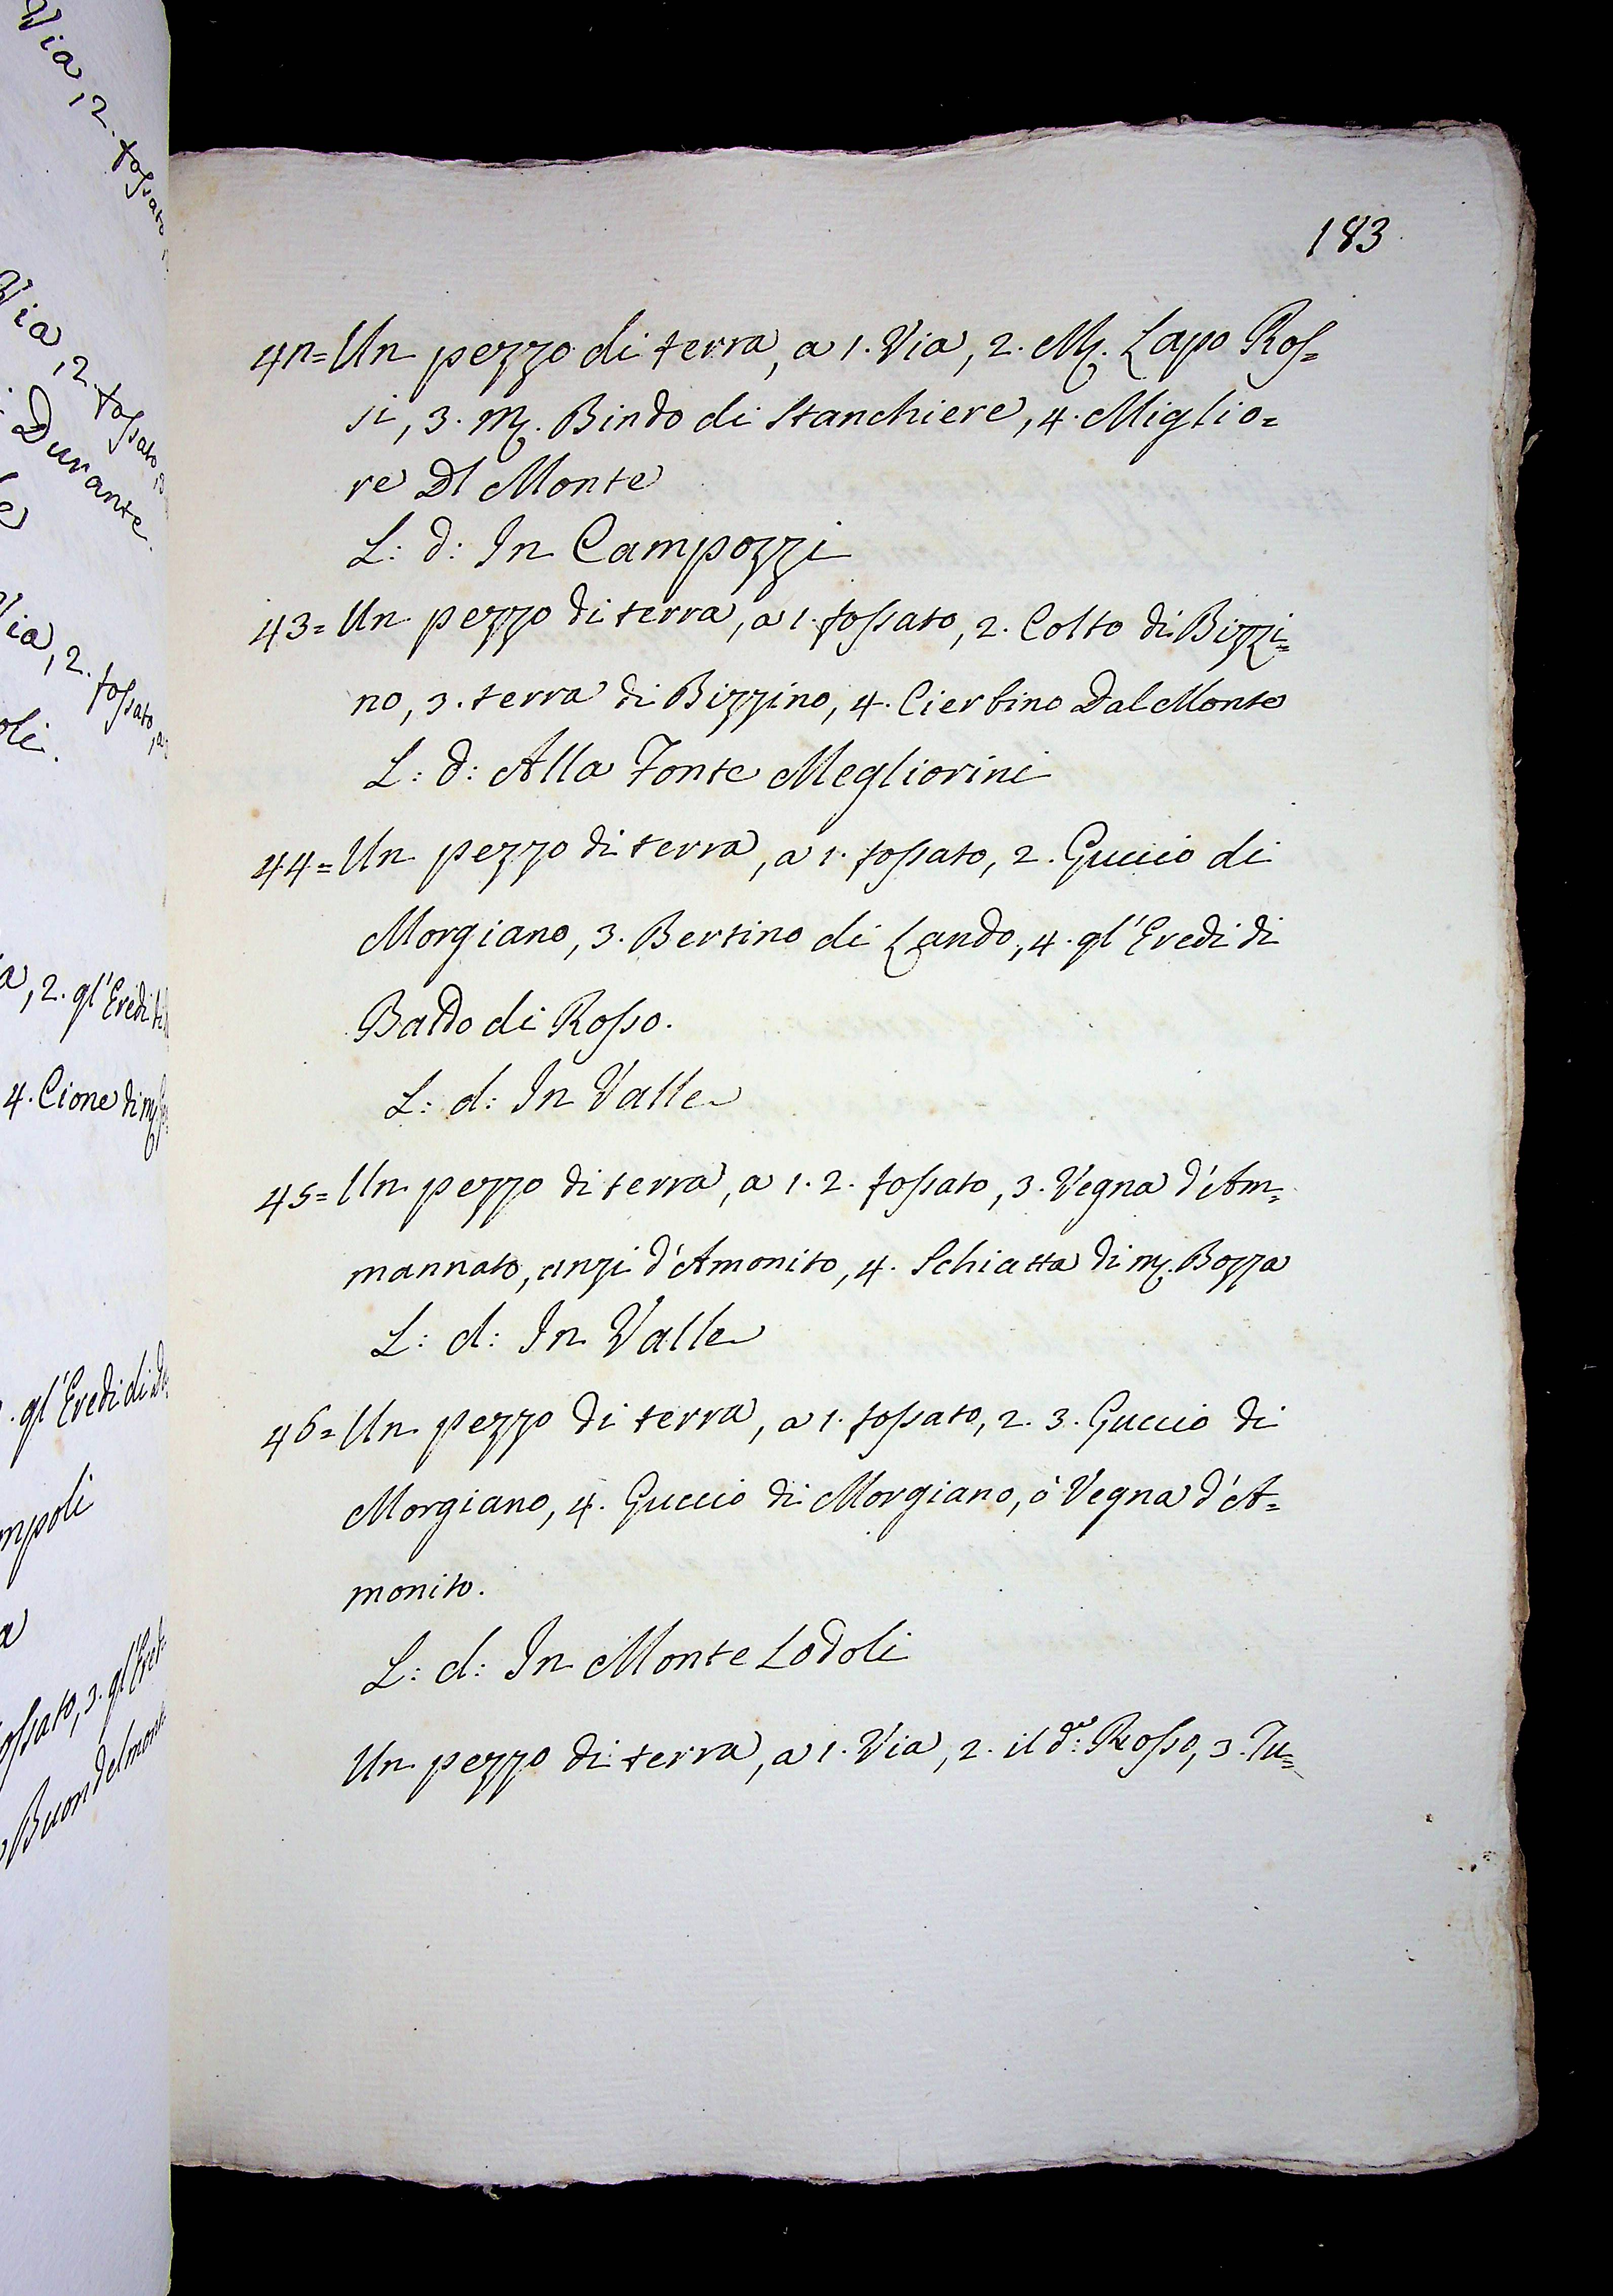 Via, 2. fossato
Via, 2. fossato,
Durante.
Via, 2. fossato,
oli.
a, 2. gl'Eredi
4. Cione di
. gl'Eredi di
mpoli
a
ossato, 3. gl'Ered
Buondelmon
183
42= Un pezzo di terra, a 1. Via, 2. M. Lapo Ros=
si, 3. M. Bindo di Stanchiere, 4. Miglio=
re Dl Monte
L: d: In Campozzi
43= Un pezzo di terra, a 1. fossato, 2. Colto di Bizzi=
no, 3. terra di Bizzino, 4. Cierbino Dal Monte
L: d: Alla Fonte Megliorini
44= Un pezzo di terra, a 1. fossato, 2. Guccio di
Morgiano, 3. Bertino di Lando, 4. gl'Eredi di
Baldo di Rosso.
L: d: In Valle
45= Un pezzo di terra, a 1. 2. fossato, 3. Vegna d'Am=
mannato, anzi d'Amonito, 4. Schiatta di M. Bozza
L: d: In Valle
46= Un pezzo di terra, a 1. fossato, 2. 3. Guccio di
Morgiano, 4. Guccio di Morgiano, ò Vegna d'A=
monito.
L: d: In Monte Lodoli
Un pezzo di terra, a 1. Via, 2. il d: Rosso, 3. Tu=